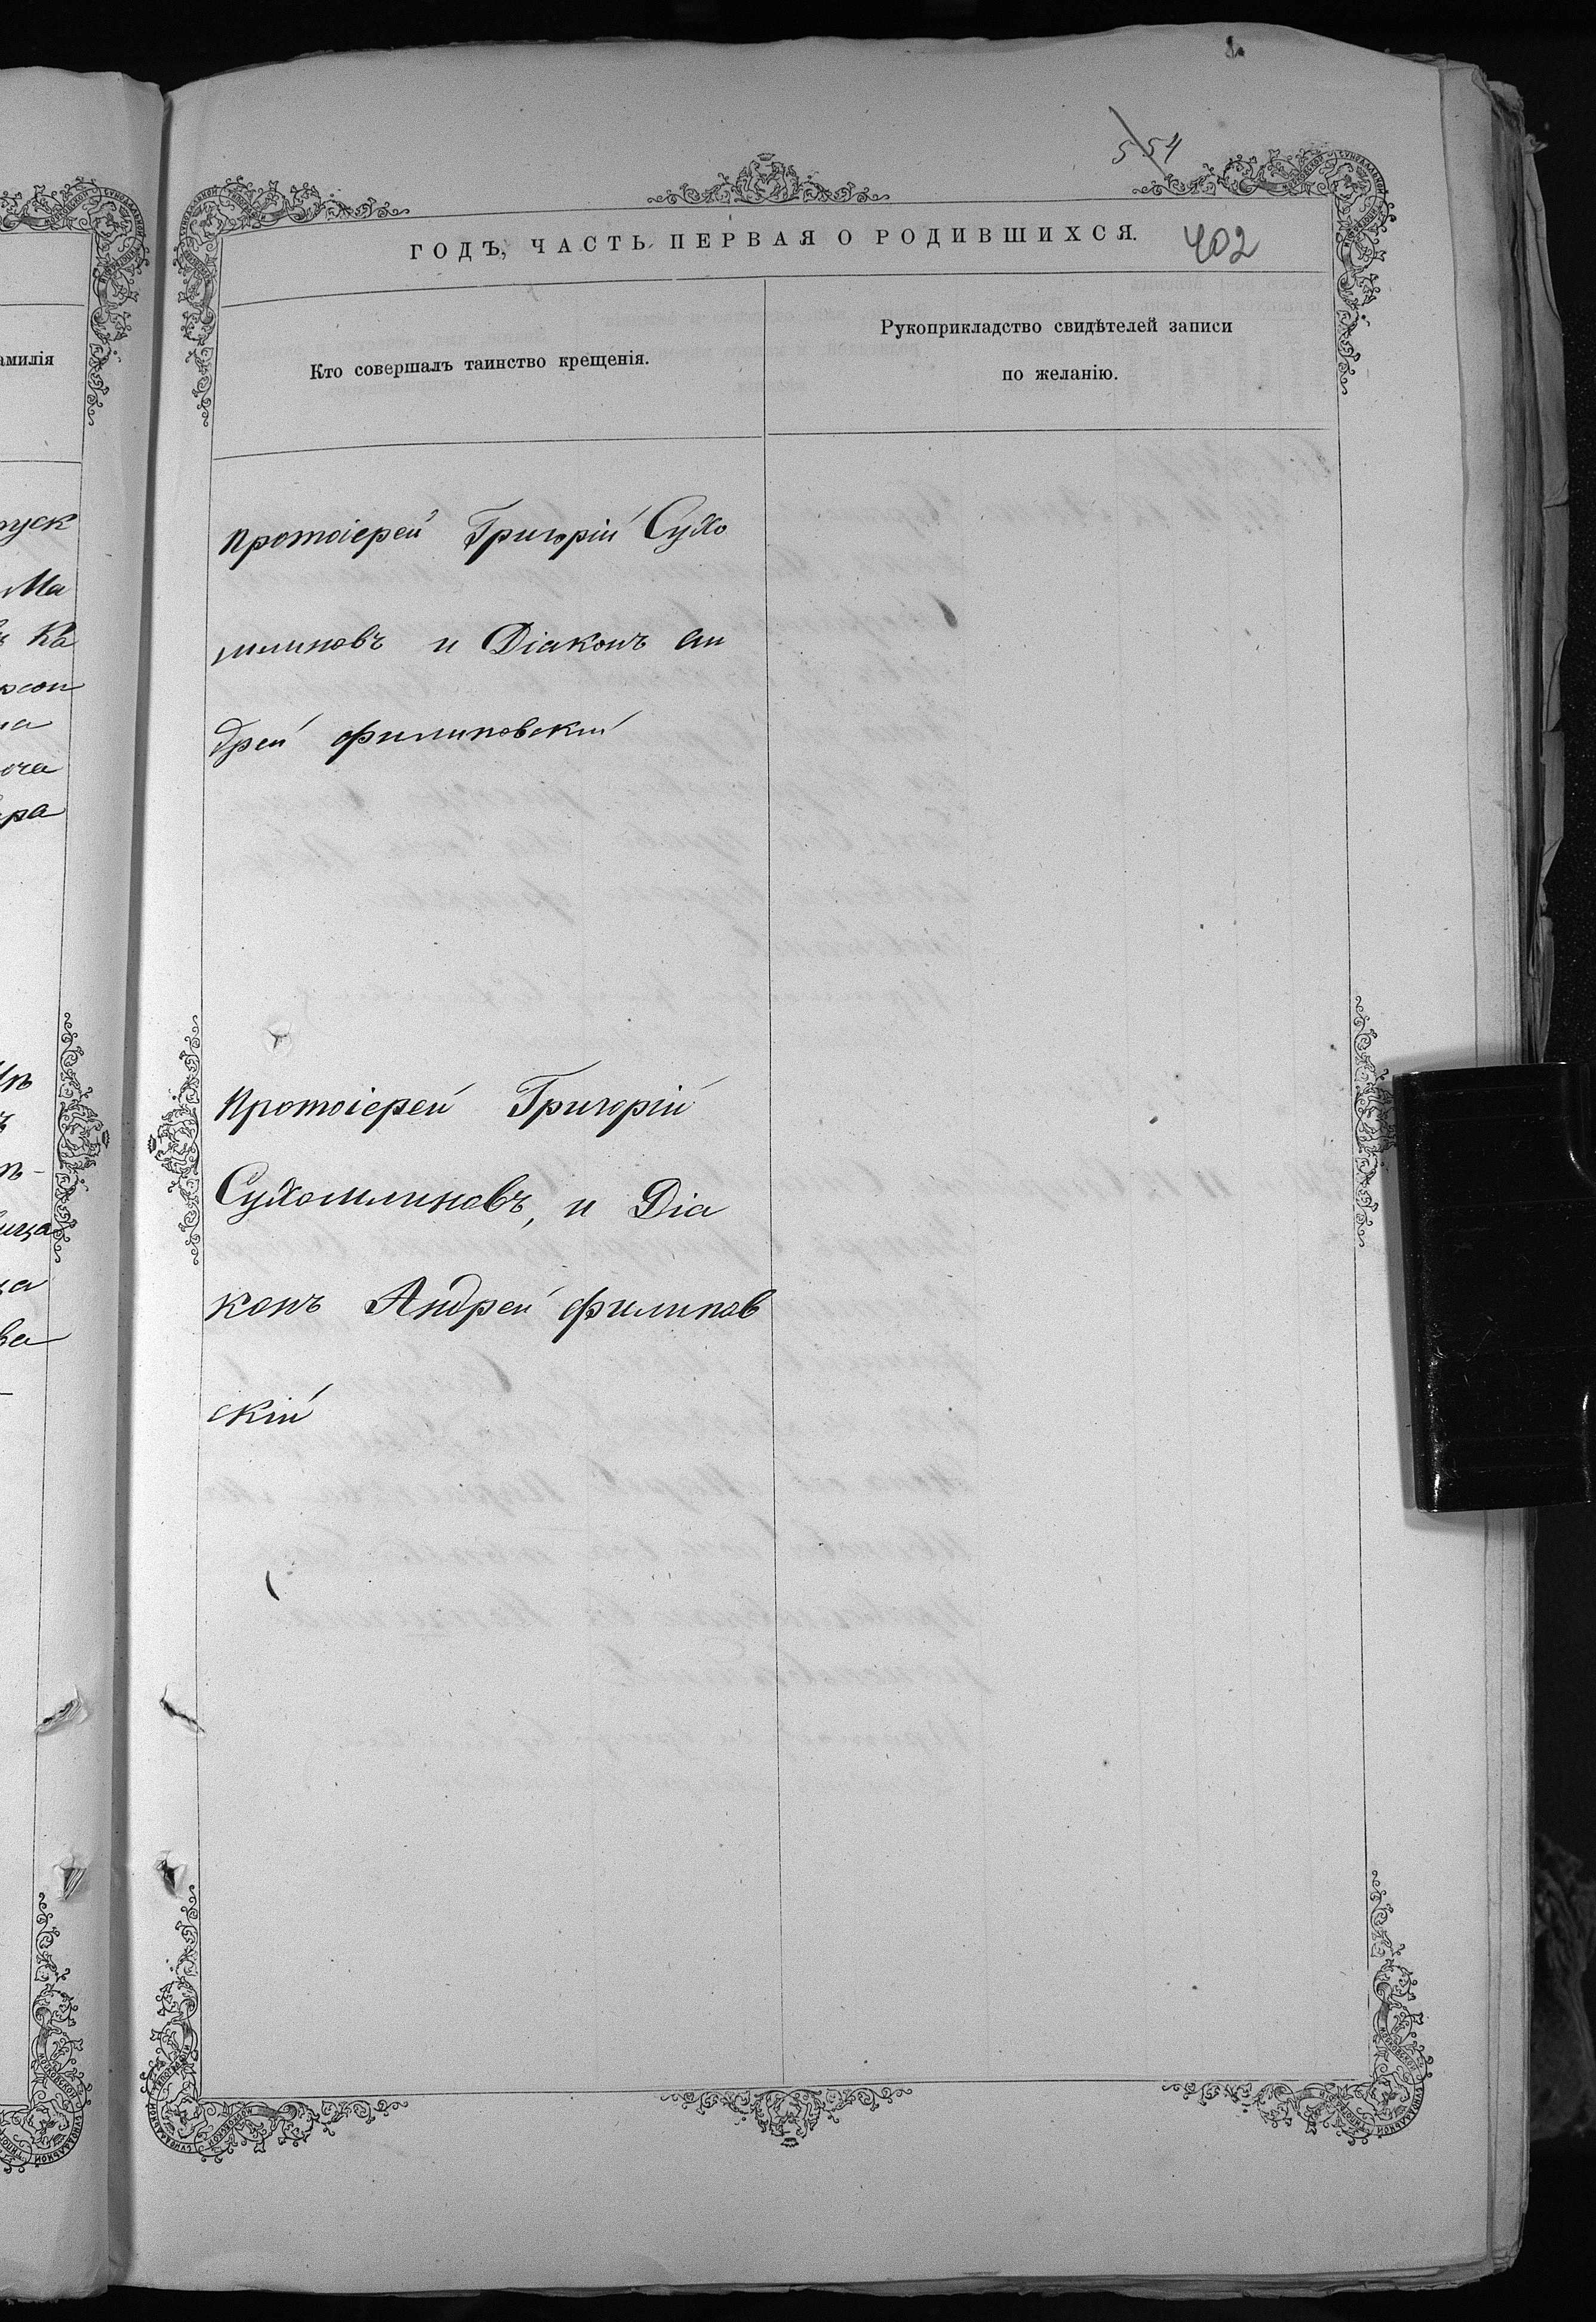 554
ГОДЪ, ЧАСТЬ ПЕРВАЯ О РОДИВШИХСЯ.
402
амилія
Кто совершалъ таинство крещенія.
Рукоприкладство свидѣтелей записи
по желанію.
Протоіерей Григорій Сухо
млиновъ и Діаконъ Ан
дрей Филиповскій
Протоіерей Григорій
Сухомлиновъ, и Діа
конъ Андрей Филипов
скій
уск
Ма
Ка
на
оча
ра
ица
ва